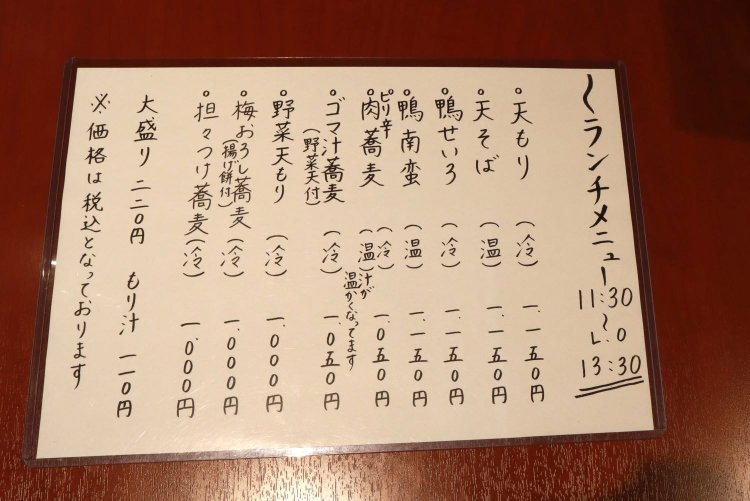 〜ランチメニュー
11:30
〜
L.O
13:30
○天もり（冷）一、一五〇円
○天そば（温）一、一五〇円
○鴨せいろ（冷）一、一五〇円
○鴨南蛮（温）一、一五〇円
○ピリ辛肉蕎麦（冷）（温）一、〇五〇円
汁が温かくなってます
○ゴマ汁蕎麦（冷）一、〇五〇円
（野菜天付）
○野菜天もり（冷）一、〇〇〇円
○梅おろし蕎麦（冷）一、〇〇〇円
（揚げ餅付）
○担々つけ蕎麦（冷）一、〇〇〇円
大盛り 二二〇円 もり汁 一一〇円
※価格は税込となっております